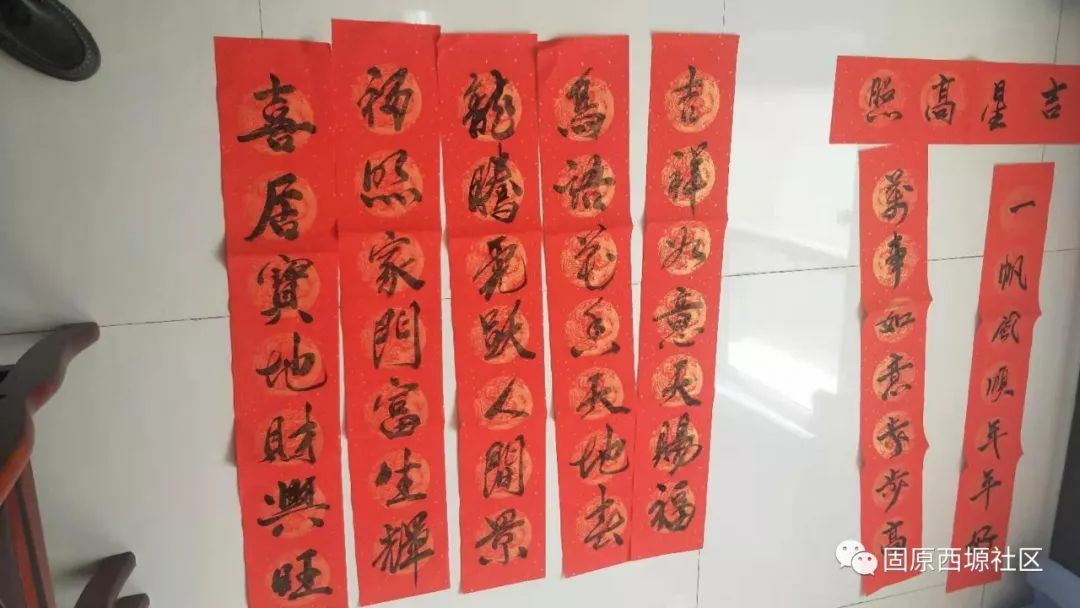 吉星高照
一帆風順年年好
萬事如意步步高
吉祥如意天賜福
鳥語花香天地春
龍騰虎跃人間景
福照家門富生輝
喜居寶地財興旺
固原西塬社区